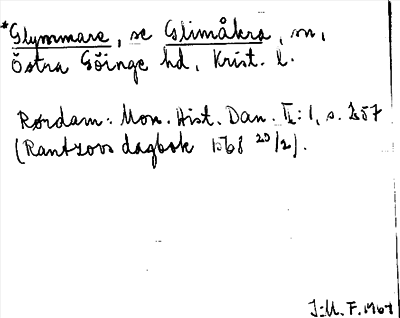 *Glymmare, se Glimåkra, sn,
Östra Göinge hd, Krist. l.
Rørdam: Mon. Hist. Dan. II:1, s. 257
(Rantzovs dagbok 1568 20/2).
J:U. F. 1967